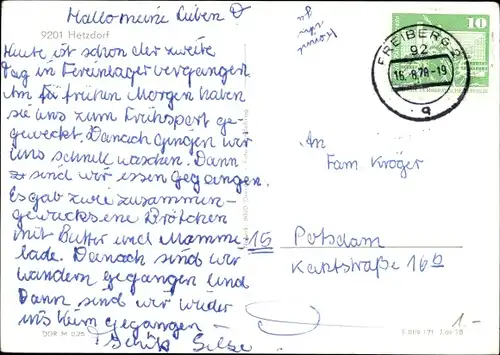 Hallo meine Liben
9201 Hetzdorf
Heute ist schon der zweite
Tag in Ferienlager vergangen
Am früten Morgen haben
sie uns zum Frühsport ge-
geweckt. Danach gingen wir
uns schnell waschen. Dann
sind wir essen gegangen.
Es gab zwei zusammen-
gewucksene Brötchen
mit Butter und Mamme
lade. Danach sind wir
wandern gegangen und
Dann sind wir wider
ins Heim gegangen
DDR M 0,25
FREIBERG 2
92
16.-8.78-19
a
10
An
Fam. Kröger
15 Potsdam
Kantstraße 16
1.-